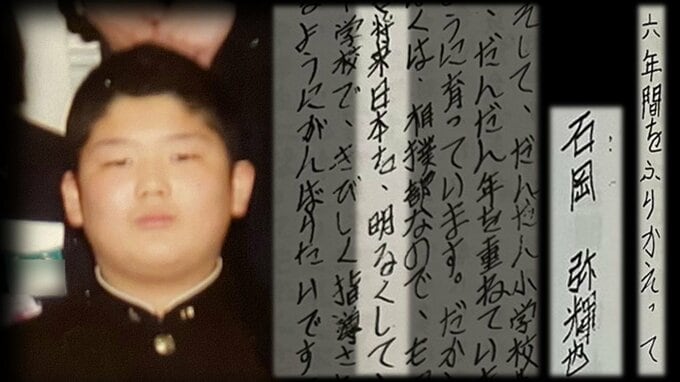 六年間をふりかえって
石岡 弥輝也
そして、だんだん小学校
、だんだん年を重ねてい
うに育っています。だか
くは、相撲部なので、も
将来日本を、明るくして
学校で、きびしく指導さ
るようにがんばりたいです